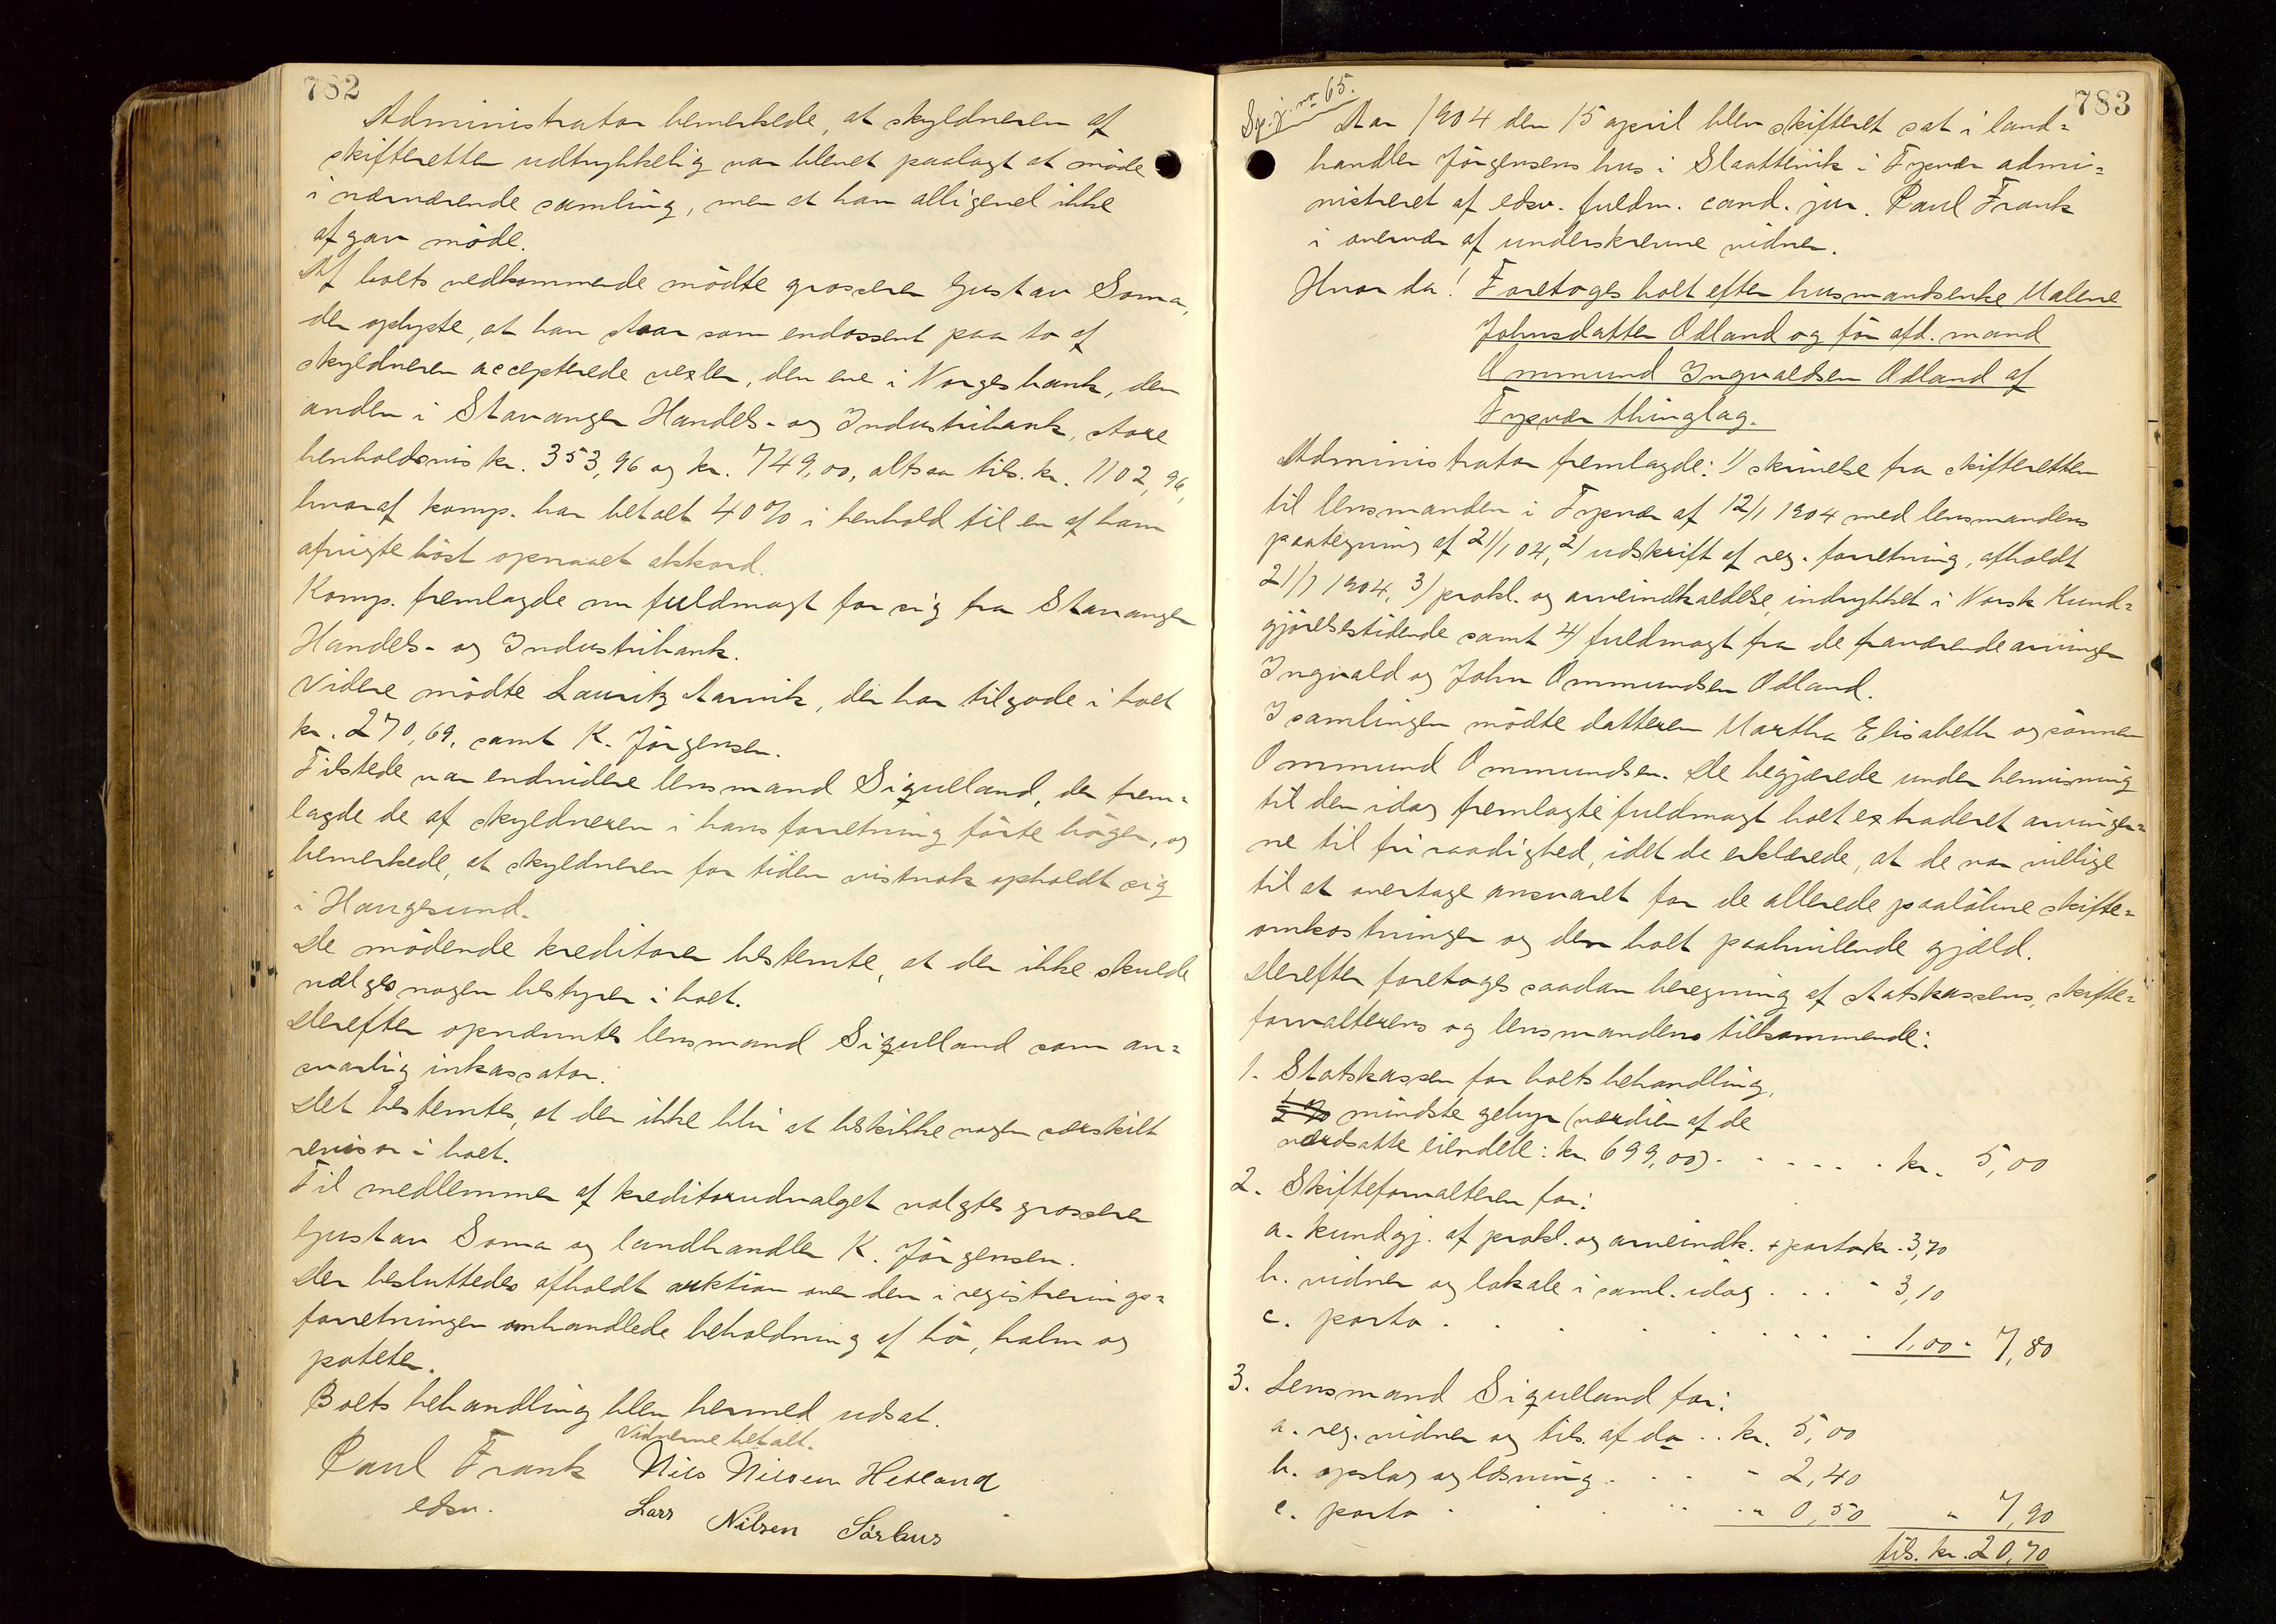 782
Administrator bemerkede, at skyldneren af
skifteretten udtrykkelig var blevet paalagt at møde
i nærværende samling, men at han alligevel ikke
afgav møde.
Af boets vedkommende mødte grosserer Gustav Soma,
der oplyste, at han staar som endossent paa to af
skyldneren accepterede vexler, den ene i Norges bank, den
anden i Stavanger Handels- og Industribank, store
henholdsvis kr. 353,96 og kr. 749,00, altsaa tils. kr. 1102,96,
hvoraf komp. har betalt 40% i henhold til en af ham
afvigte høst opnaaet akkord.
Komp. fremlagde nu fuldmagt for sig fra Stavanger
Handels- og Industribank.
Videre mødte Lauritz Aarvik, der har tilgode i boet
kr. 270,69, samt K. Jörgensen.
Tilstede var endvidere lensmand Siqveland, der frem=
lagde de af skyldneren i hans forretning förte böger, og
bemerkede, at skyldneren for tiden vistnok opholdt sig
i Haugesund.
De mödende kreditorer bestemte, at der ikke skulde
vælges nogen bestyrer i boet.
Derefter opnævntes lensmand Siqveland som an=
svarlig inkassator.
Det bestemtes, at der ikke blir at beskikke nogen særskilt
revisor i boet.
Til medlemmer af kreditorudvalget valgtes grosserer
Gustav Soma og landhandler K. Jörgensen.
Der besluttedes afholdt auktion over den i registrerings=
forretningen omhandlede beholdning af hö, halm og
poteter.
Boets behandling blev hermed udsat.
Vidnerne betalt.
Paul Frank Nils Nilsen Hetland
edsv. Lars Nilsen Sörhus
783
Sp.j. no 65.
Aar 1904 den 15 april blev skifteret sat i land=
handler Jörgensens hus i Slaattevik i Tysvær admi=
nistreret af edsv. fuldm. cand. jur. Paul Frank
i overvær af underskrevne vidner.
Hvor da! Foretoges boet efter husmandsenke Malene
Johnsdatter Ødland og før afd. mand
Ommund Ingvaldsen Ødland af
Tysvær thinglag.
Administrator fremlagde: 1/ skrivelse fra skifteretten
til lensmanden i Tysvær af 12/1 1904 med lensmandens
paategning af 21/1 04, 2/ udskrift af reg. forretning, afholdt
21/1 1904, 3/ prokl. og arveindkaldelse, indrykket i Norsk Kund=
gjörelsestidende samt 4/ fuldmagt fra de fraværende arvinger
Ingvald og John Ommundsen Ødland.
I samlingen mödte datteren Martha Elisabeth og sönnen
Ommund Ommundsen. De begjærede under henvisning
til den idag fremlagte fuldmagt boet extraderet arvinger=
ne til fri raadighed, idet de erklærede, at de var villige
til at overtage ansvaret for de allerede paaløbne skifte=
omkostninger og den boet paahvilende gjæld.
Derefter foretoges saadan beregning af statskassens, skifte=
forvalterens og lensmandens tilkommende:
1. Statskassen for boets behandling,
½ % mindste gebyr (værdien af de
værdsatte eiendele: kr 699,00) . . . . . kr. 5,00
2. Skifteforvalteren for:
a. kundgj. af prokl. og arveindk. + porto kr. 3,70
b. vidner og lokale i saml. idag . . . " 3,10
c. porto . . . . . . . . 1,00 " 7,80
3. Lensmand Siqveland for:
a. reg. vidner og tils. af do . . kr. 5,00
b. opslag og læsning . . . " 2,40
c. porto . . . . . " 0,50 " 7,90
tils. kr. 20,70